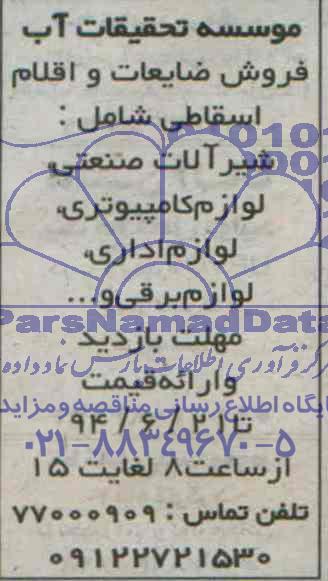 موسسه تحقیقات آب
فروش ضایعات و اقلام
اسقاطی شامل :
شیرآلات صنعتی،
لوازم کامپیوتری،
لوازم اداری،
لوازم برقی و...
ParsNamadData
مهلت بازدید
مرکز فرآوری اطلاعات پارس نماد داده
وارائه قیمت
پایگاه اطلاع رسانی مناقصه و مزایده
تا ۹۴/۶/۲۱
۰۲۱-۸۸۳۴۹۶۷۰-۵
از ساعت ۸ لغایت ۱۵
تلفن تماس : ۷۷۰۰۰۹۰۹
۰۹۱۲۲۷۲۱۵۳۰